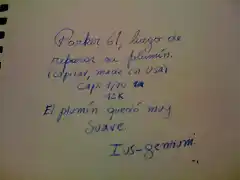 Parker 61, luego de
reparar su plumín.
(capilar, made in USA)
Capi 1/10
12K
El plumín quedó muy
suave
Ius-gemini